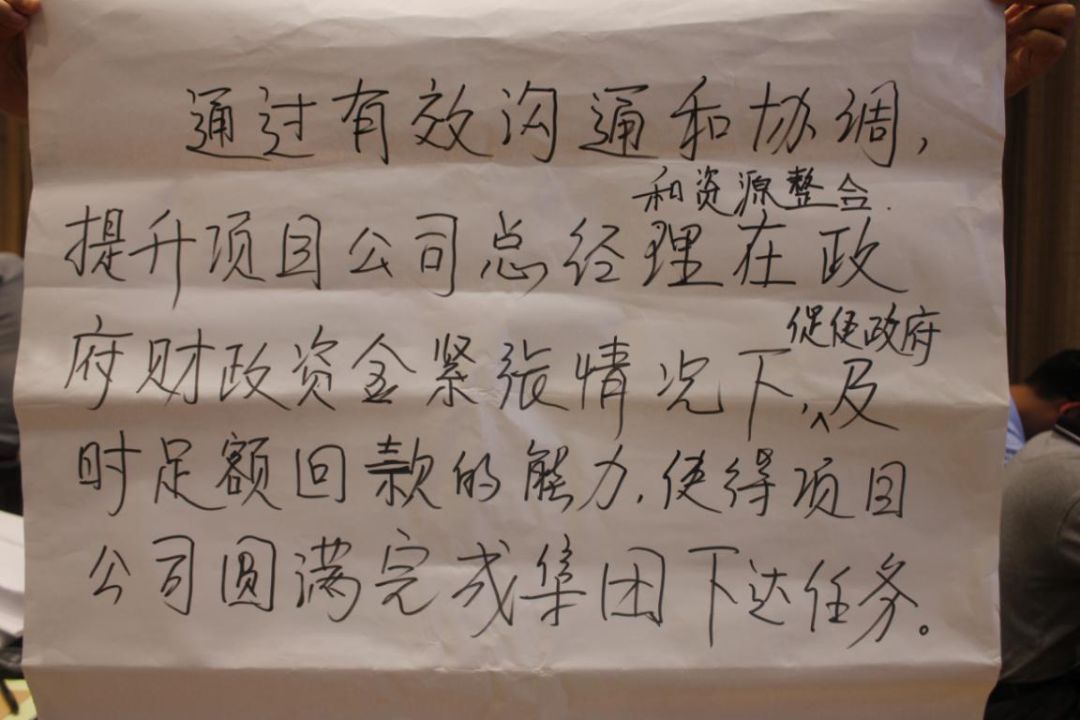 通过有效沟通和协调，
和资源整合.
提升项目公司总经理在政
促使政府
府财政资金紧张情况下，及
时足额回款的能力，使得项目
公司圆满完成集团下达任务。